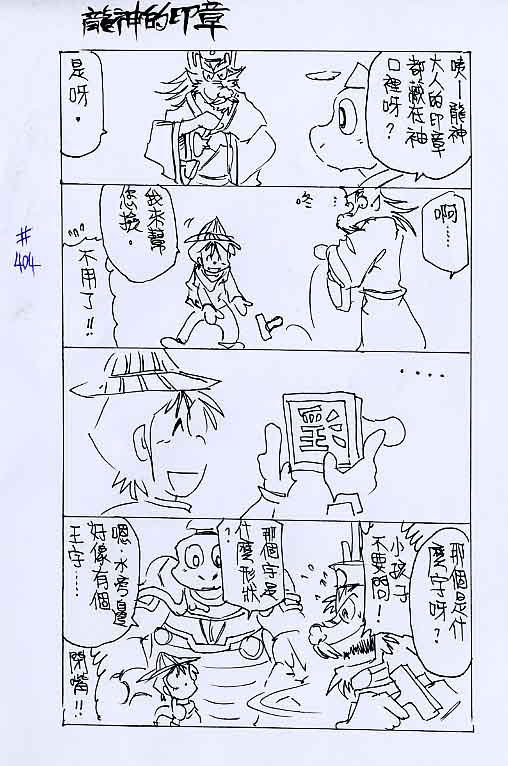 龍神的印章
咦－龍神
大人的印章
都藏在袖
口裡呀？
是呀。
啊……
咚…
我來幫
您撿。
不用了!!
#
404
....
那個是什
麼字呀？
小孩子
不要問！
那個字是
什麼形狀
？
嗯，水旁邊
好像有個
王字……
閉嘴!!